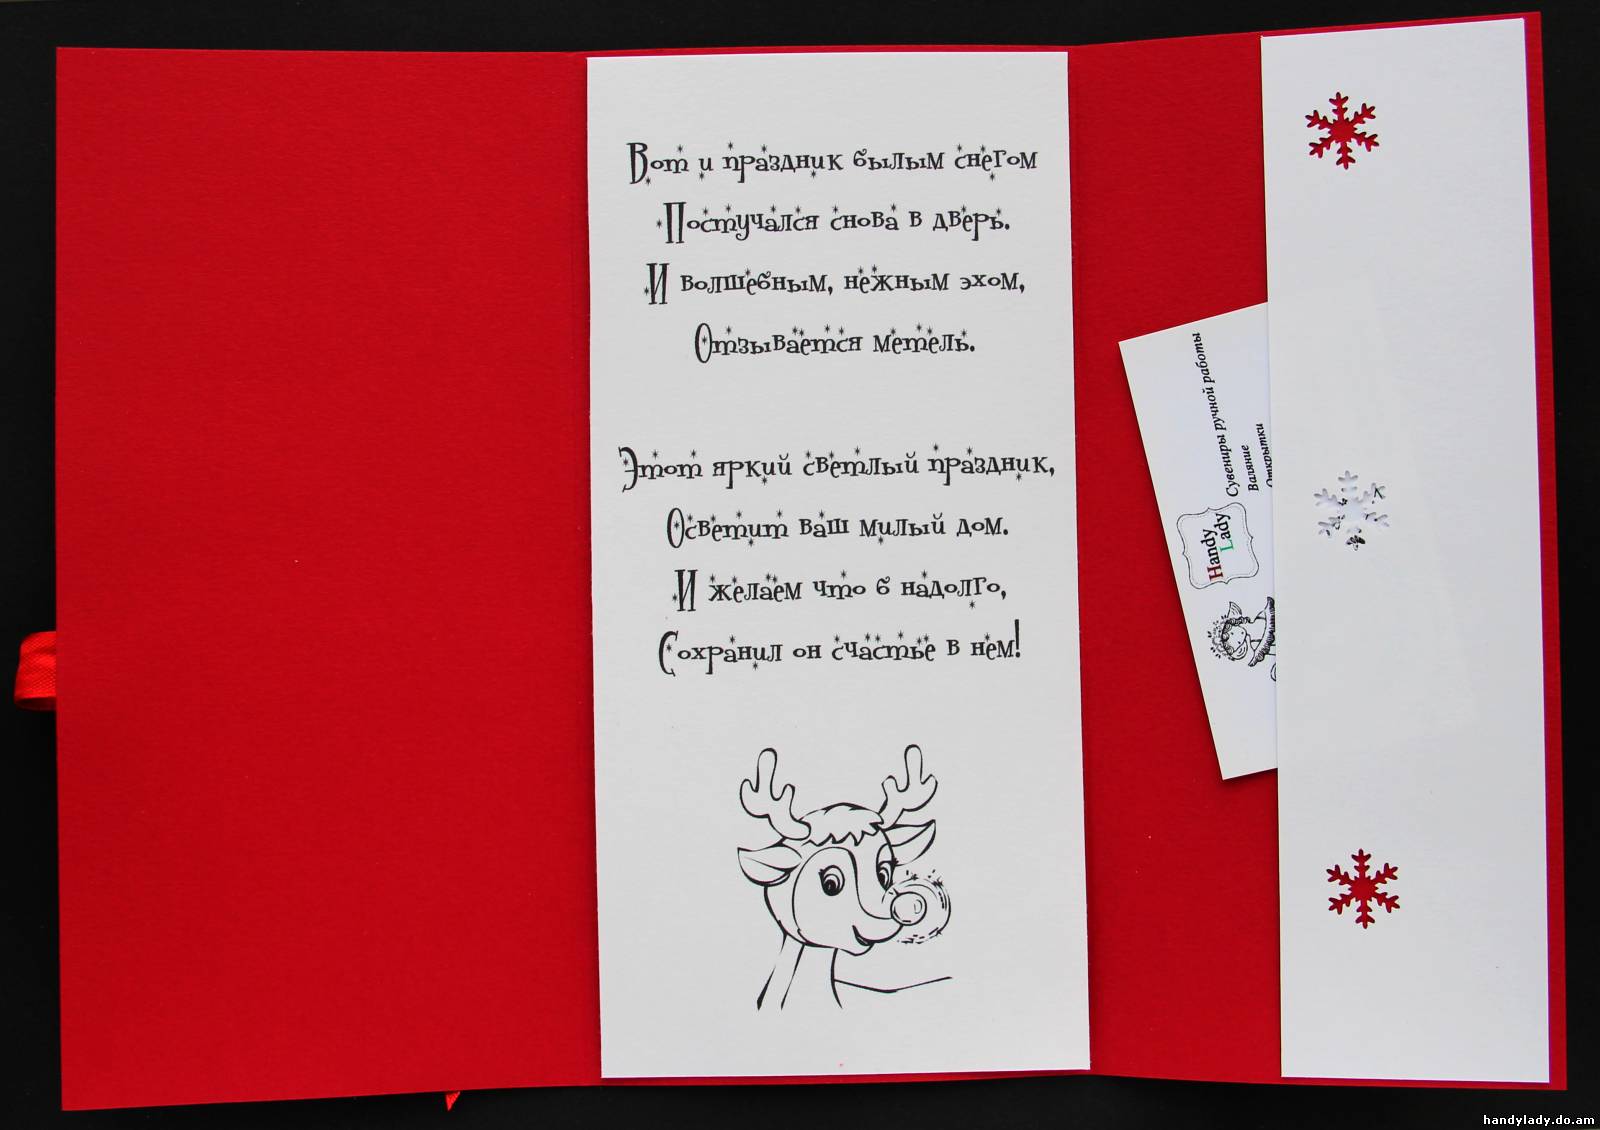 Вот и праздник былым снегом
Постучался снова в дверь.
И волшебным, нежным эхом,
Отзывается метель.
Этот яркий светлый праздник,
Осветит ваш милый дом.
И желаем что б надолго,
Сохранил он счастье в нем!
Handy
Lady
Сувениры ручной работы
Валяние
Открытки
handylady.do.am